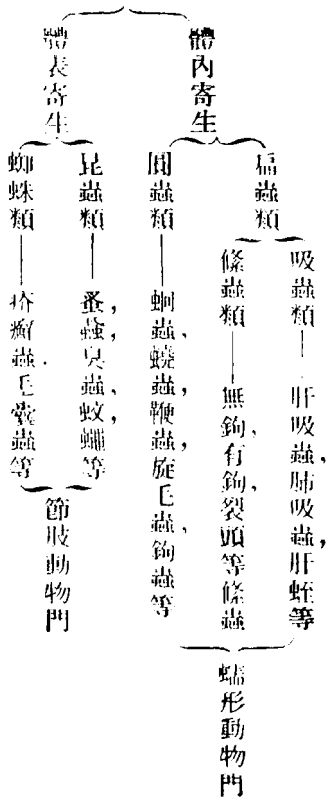 體內寄生
扁蟲類
吸蟲類
肝吸蟲，肺吸蟲，肝蛭等
條蟲類
無鉤，有鉤，裂頭等條蟲
蠕形動物門
圓蟲類
蛔蟲、蟯蟲，鞭蟲，旋毛蟲，鉤蟲等
體表寄生
昆蟲類
蚤，蝨，臭蟲，蚊，蠅等
蜘蛛類
疥癬蟲．毛囊蟲等
節肢動物門